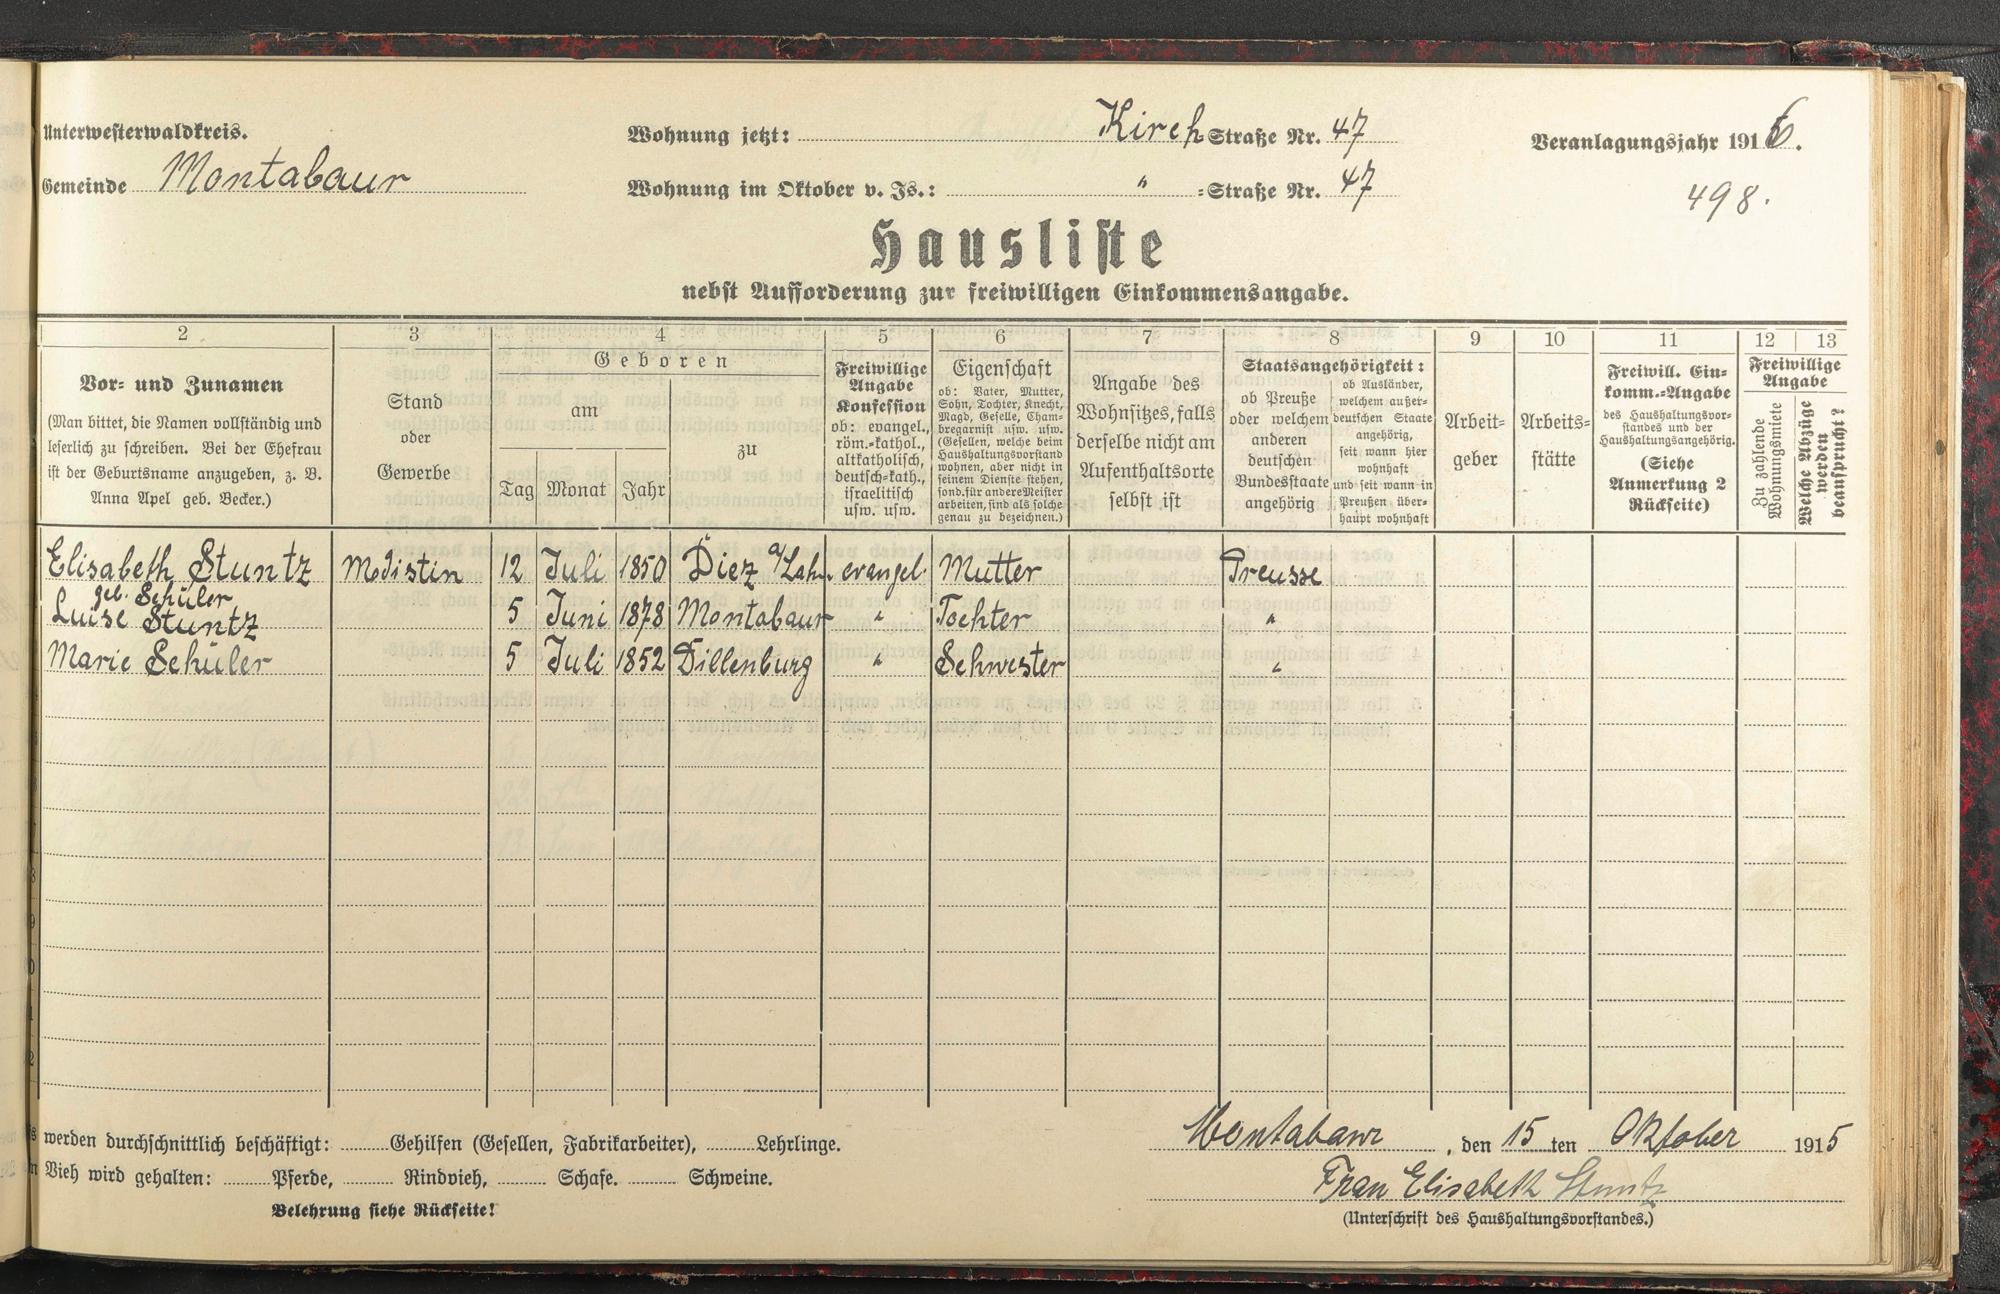 Unterwesterwaldkreis.
Gemeinde Montabaur
Wohnung jetzt: Kirch Straße Nr. 47
Wohnung im Oktober v. Js.: " =Straße Nr. 47
Veranlagungsjahr 1916.
498.
Hausliste
nebst Aufforderung zur freiwilligen Einkommensangabe.
2 3 4 5 6 7 8 9 10 11 12 13
Vor- und Zunamen
(Man bittet, die Namen vollständig und
leserlich zu schreiben. Bei der Ehefrau
ist der Geburtsname anzugeben, z. B.
Anna Apel geb. Becker.)
Stand
oder
Gewerbe
Geboren
am
Tag Monat Jahr
zu
Freiwillige
Angabe
Konfession
ob: evangel.,
röm.-kathol.,
altkatholisch,
deutsch-kath.,
israelitisch
usw. usw.
Eigenschaft
ob: Vater, Mutter,
Sohn, Tochter, Knecht,
Magd, Geselle, Cham-
bregarnist usw. usw.
(Gesellen, welche beim
Haushaltungsvorstand
wohnen, aber nicht in
seinem Dienste stehen,
sond. für andere Meister
arbeiten, sind als solche
genau zu bezeichnen.)
Angabe des
Wohnsitzes, falls
derselbe nicht am
Aufenthaltsorte
selbst ist
Staatsangehörigkeit:
ob Preuße
oder welchem
anderen
deutschen
Bundesstaate
angehörig
ob Ausländer,
welchem außer-
deutschen Staate
angehörig,
seit wann hier
wohnhaft
und seit wann in
Preußen über-
haupt wohnhaft
Arbeit-
geber
Arbeits-
stätte
Freiwill. Ein-
komm.-Angabe
des Haushaltungsvor-
standes und der
Haushaltungsangehörig.
(Siehe
Anmerkung 2
Rückseite)
Freiwillige
Angabe
Zu zahlende
Wohnungsmiete
Welche Abzüge
werden
beansprucht?
Elisabeth Stuntz Modistin 12 Juli 1850 Diez a/Lahn. evangel. Mutter Preusse
geb. Schüler
Luise Stuntz 5 Juni 1878 Montabaur " Tochter "
Marie Schüler 5 Juli 1852 Dillenburg " Schwester "
werden durchschnittlich beschäftigt: Gehilfen (Gesellen, Fabrikarbeiter), Lehrlinge.
Vieh wird gehalten: Pferde, Rindvieh, Schafe. Schweine.
Belehrung siehe Rückseite!
Montabaur, den 15 ten Oktober 1915
Frau Elisabeth Stuntz
(Unterschrift des Haushaltungsvorstandes.)